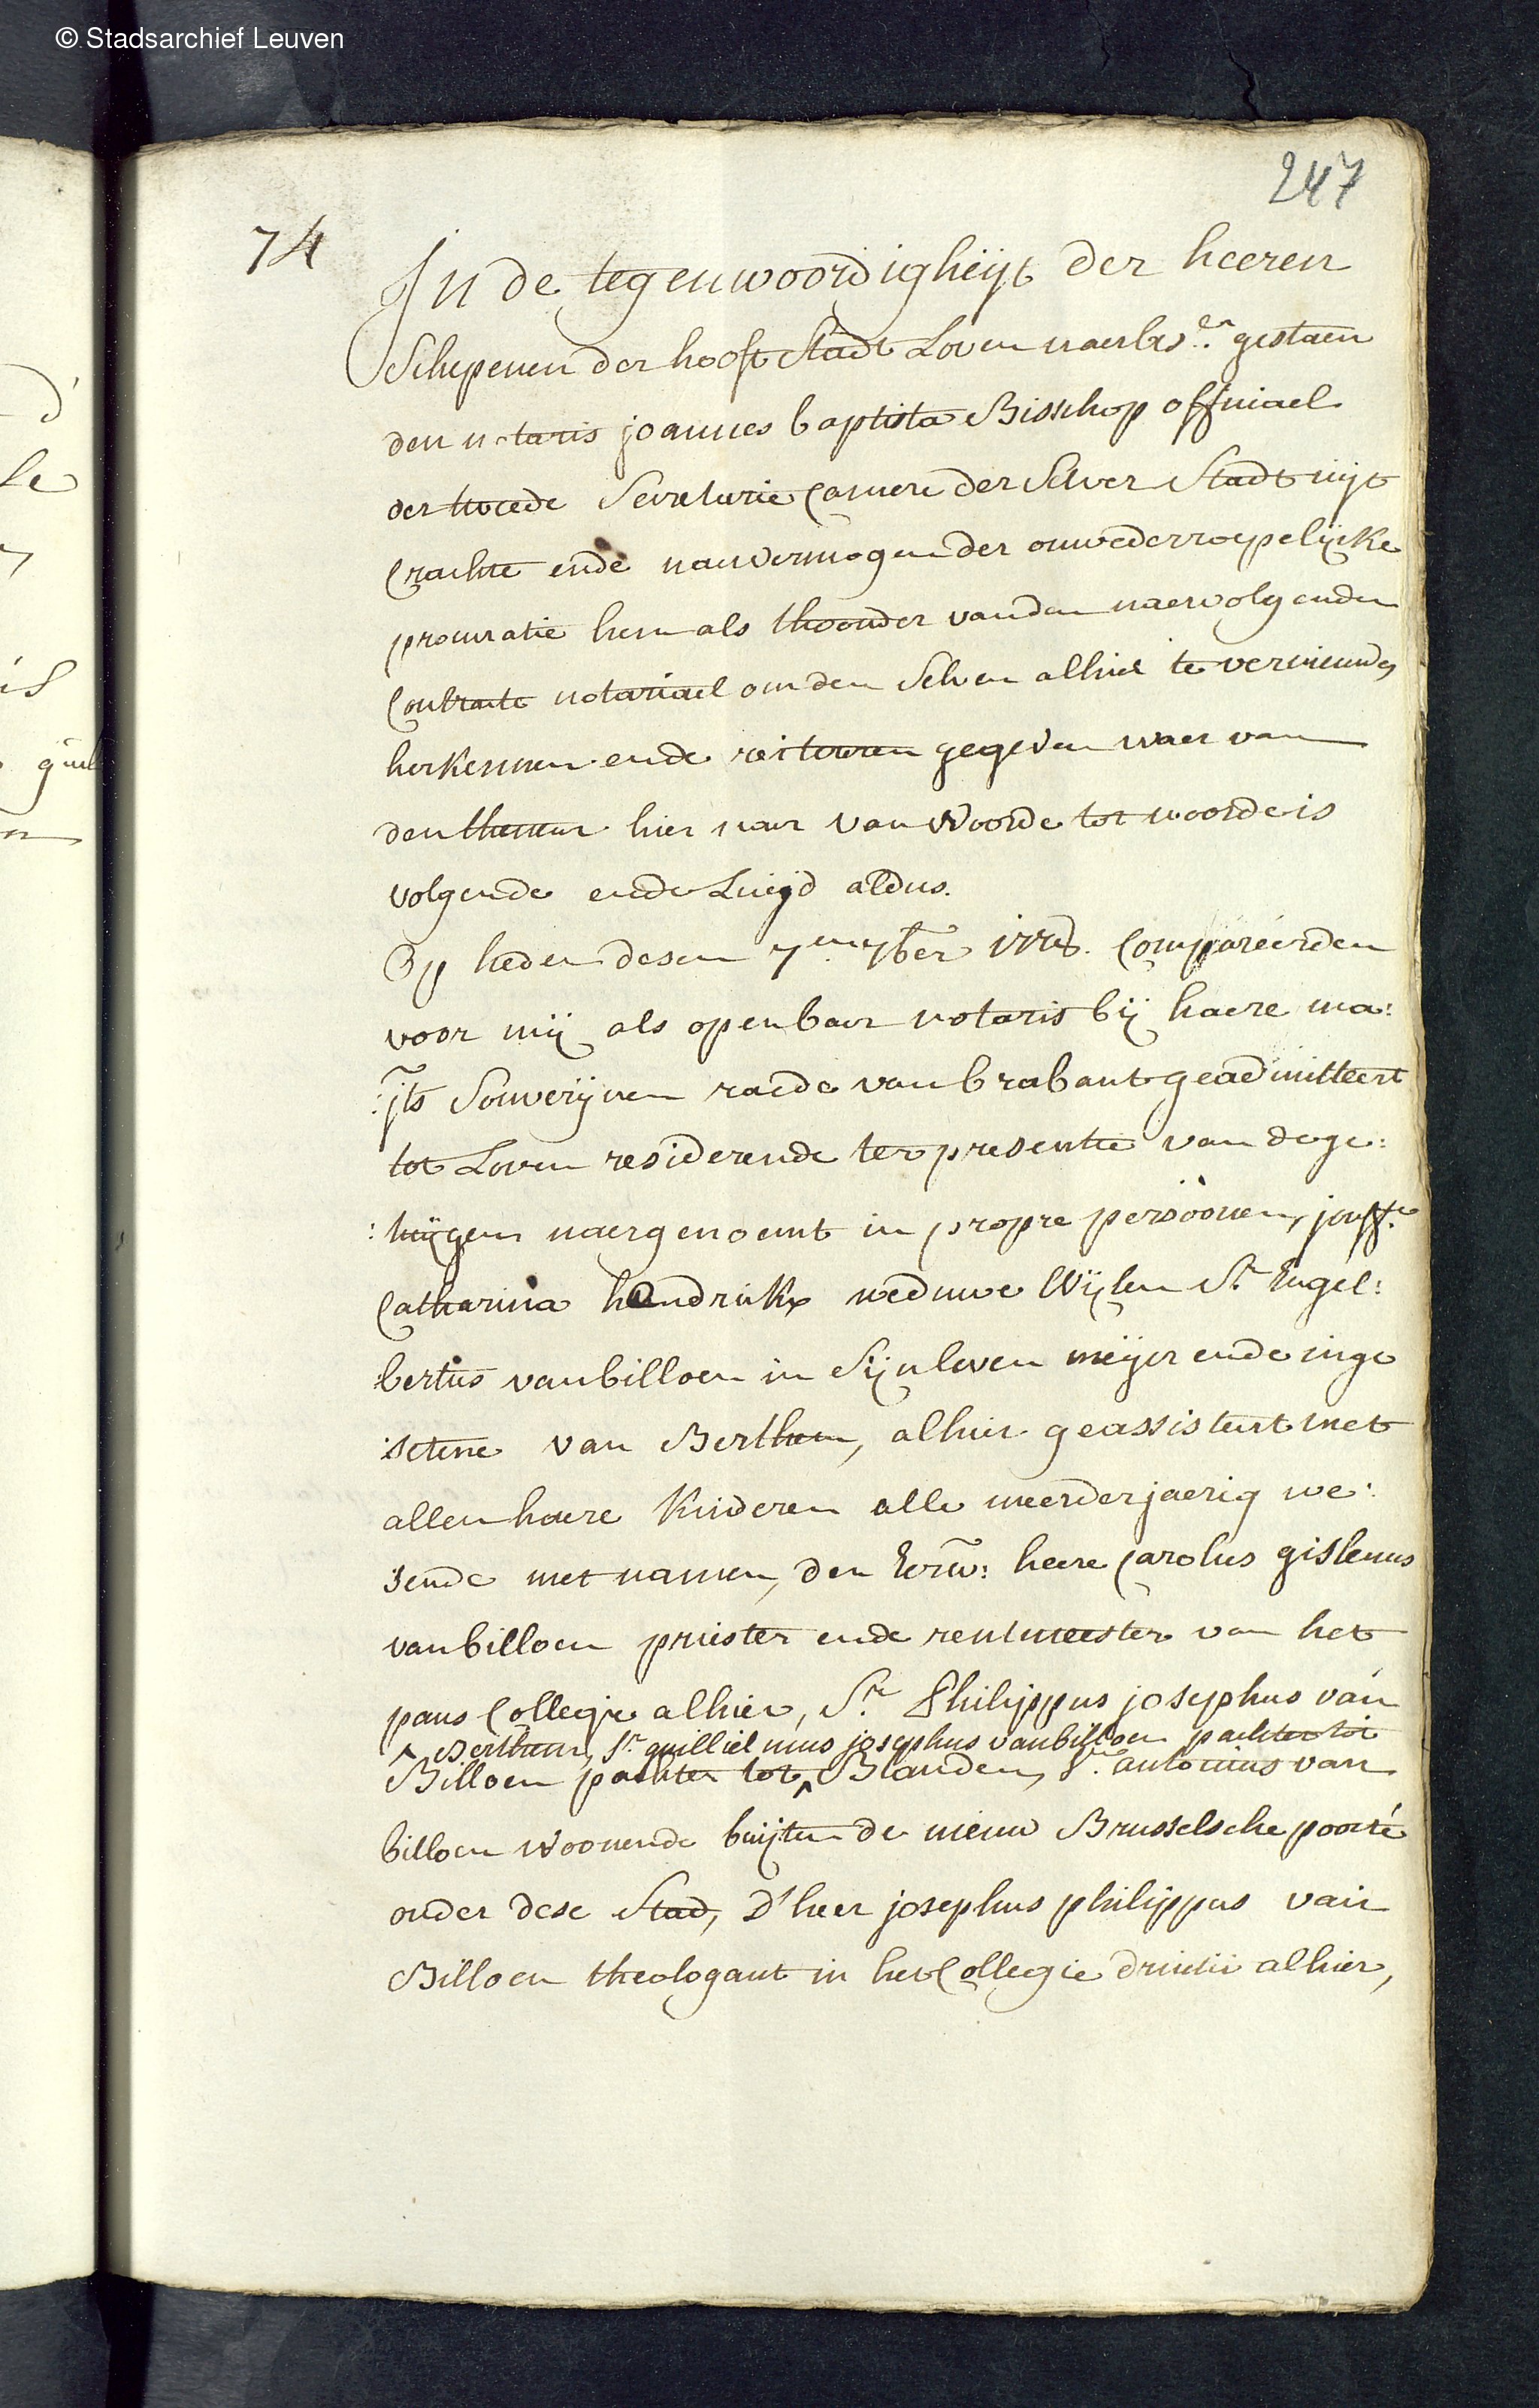 © Stadsarchief Leuven
247
74
In de tegenwoordigheijt der heeren
Schepenen der hooft Stadt Loven naerbes.en gestaen
den notaris joannes baptista Bisschop officiael
der tweede Secretarie Camere der Selver Stadt uijt
Crachte ende naervermogen der onwederroepelijcke
procuratie hem als thoonder vanden naervolgenden
Contracte notariael om den Selven alhier te vernieuwen
herkennen ende reitereren gegeven waer van
den theneur hier naer van Woorde tot woorde is
volgende ende Luijd aldus.
Op heden desen 7en 7ber Compareerden
voor mij als openbaer notaris bij haere ma:
:jts Souverijnen raede van brabant geadmitteert
tot Loven residerende ter presentie van dege:
:tuijgen naergenoemt in propre persoonen, jouffe
Catharina hendrickx weduwe Wijlen Sr Engel:
bertus vanbilloen in Sijn leven meijer ende inge
:setene van Berthem, alhier geassisteert met
allen haere Kinderen alle meerderjaerig we:
sende met namen, den Eerw: heere Carolus gislenus
vanbilloen priester ende rentmeester van het
paus Collegie alhier, Sr Philippus josephus van
^ Berthem, Sr guillielmus josephus vanbilloen pachter tot
Billoen pachter tot ^ Blanden, Sr antonius van
billoen Woonende buijten de nieuw Brusselsche poorte
onder dese Stad, D'heer josephus philippus van
Billoen theologant in het Collegie drutii alhier,